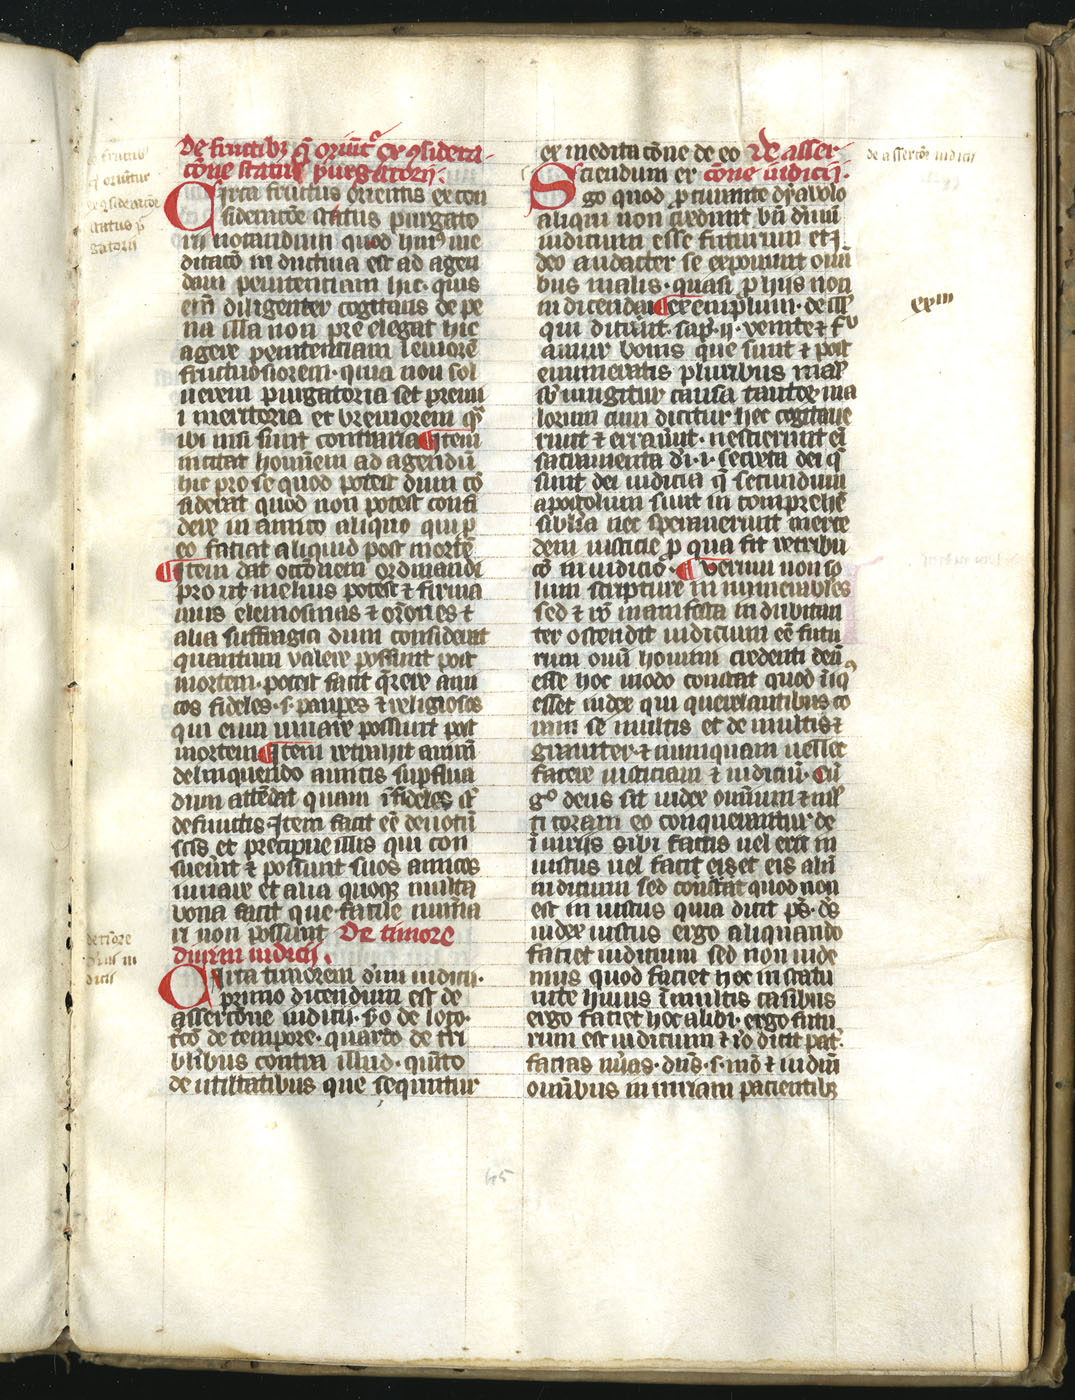 De fructibꝫ q̄ oriūt̄ ex ɔsidera
cōne status purgatorij.
Circa fructus orientis ex con
sideratōe status purgato
rij notandum quod huiꝰ me
ditacō in ductiua est ad agen
dam penitentiam hic. quis
eīm diligenter cogitans de pe
na illa non pre elegat hic
agere penitentiam leuiorē
fructuosiorem. quia non sol
uerem purgatoria set premi
i meritoria et breuiorem
ibi nisi sunt contraria ¶ Item
incitat hominem ad agendū
hic pro se quod potest dum cō
siderat quod non potest confi
dere in amico aliquo qui ꝓ
eo faciat aliquid post mortē
¶ Item dat occōnem ordinandi
pro ut melius potest ⁊ firma
mus elemosinas ⁊ orōnes ⁊
alia suffragia dum considerat
quantum valere possunt post
mortem. potest facit q̄rere ami
cos fideles. s. paupes ⁊ religiosos
qui eum iuuare possunt post
mortem ¶ Item retrahit animū
delinquendo amicis supflua
dum attēdat quam īfideles sūt
defunctis Item facit eē deuotū
scīs et precipue illis qui con
sueuīt ⁊ possunt suos amicos
iuuare et alia quoqꝫ multa
bona facit que facile
ri non possunt De timore
diuini iudicij.
Circa timorem diuī iudicij.
primo dicendum est de
assercōne iudicij. sꝫo de loco.
tcō de tempore. quarto de tri
blibus contra illud. quīto
de utilitatibus que sequntur
ex medita cōne de eo De asser
cōne iudicij.
Sciendum er
go quod ꝓcurante dyabolo
aliqui non credunt bn̄ diuī
iudicium esse futurum et ī
deo audacter se exponunt omī
bus malis. quasi ꝓ hijs non
iudicendar ¶ exemplum. de illꝭ
qui dicunt. sap. ij. venite ⁊ fru
amur bonis que sunt ⁊ post
enumeratis pluribus malꝭ
sb iungitur causa tantorꝫ ma
lorum cum dicitur hec cogitaue
runt ⁊ errauerūt. nescierunt eī
sacramenta di. i. secreta dei q̄
sunt dei iudicia q̄ secundum
apostolum sunt in comprehē
siblia nec sperauerunt merce
dem iusticie ꝓ qua fit retribu
cō in iudicio. ¶ Verum non so
lum scripture in numerabiles
sed ⁊ rō manifesta in dubitan
ter ostendit iudicium eē futu
rum omī homini credenti deū
esse hoc modo constat quod īiqꝰ
esset iudex qui querelantibus co
ram se multis et de multis ⁊
grauiter ⁊ numquam uellet
facere iusticiam ⁊ iudiciū. Cū
gͦ deus sit iudex omīum ⁊ mł
ti coram eo conquerantur de
īiurijs sibi factis uel erit in
iustus uel facit eis et eis aliī
iudicium sed constat quod non
est in iustus quia dicit pš. dš
iudex iustus ergo aliquando
faciet iudicium sed non uide
mus quod faciet hoc in statu
uite huius ī multis casibus
ergo faciet hoc alibi. ergo futu
rum est iudicium ⁊ iō dicit pat.
facias dūs. s. mō ⁊ iudiū
omībus iniuriam pacientibꝫ
fructibꝰ
q̄ oriūtur
ex ɔsideratōe
status pur
gatorij
de timore
diuini iu
dicij
de assercōe iudicij
xxiii
45